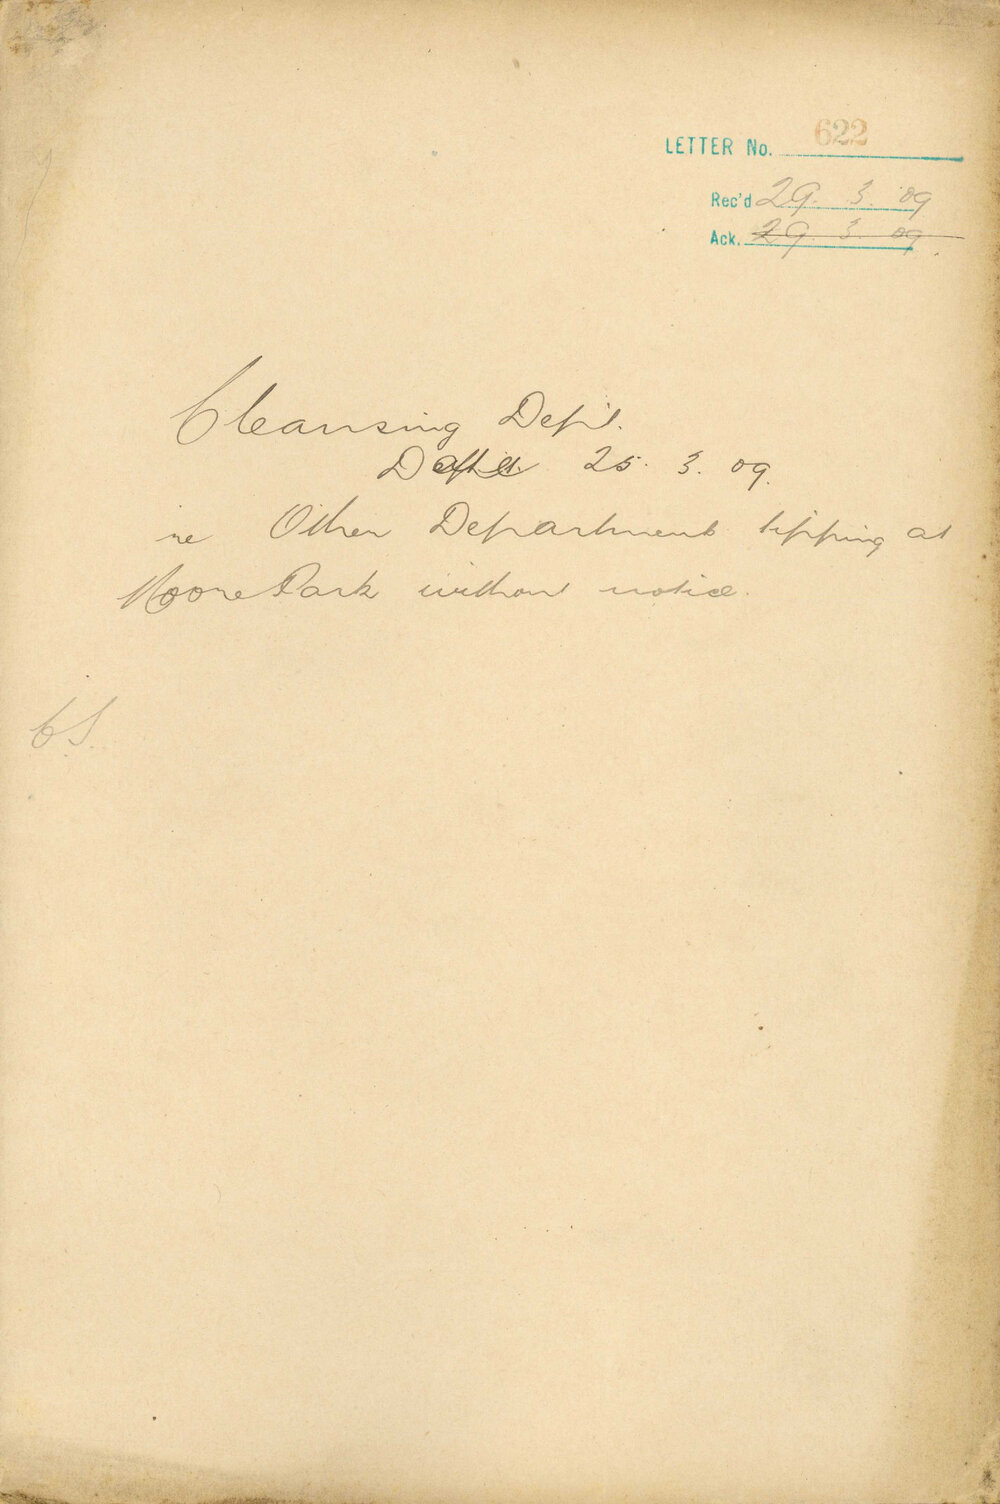 LETTER No. 622
Rec'd 29. 3. 09
Ack. 29. 3. 09.
Cleansing Dept.
Date 25. 3. 09.
re Other Departments tipping at
Moore Park without notice.
C.S.